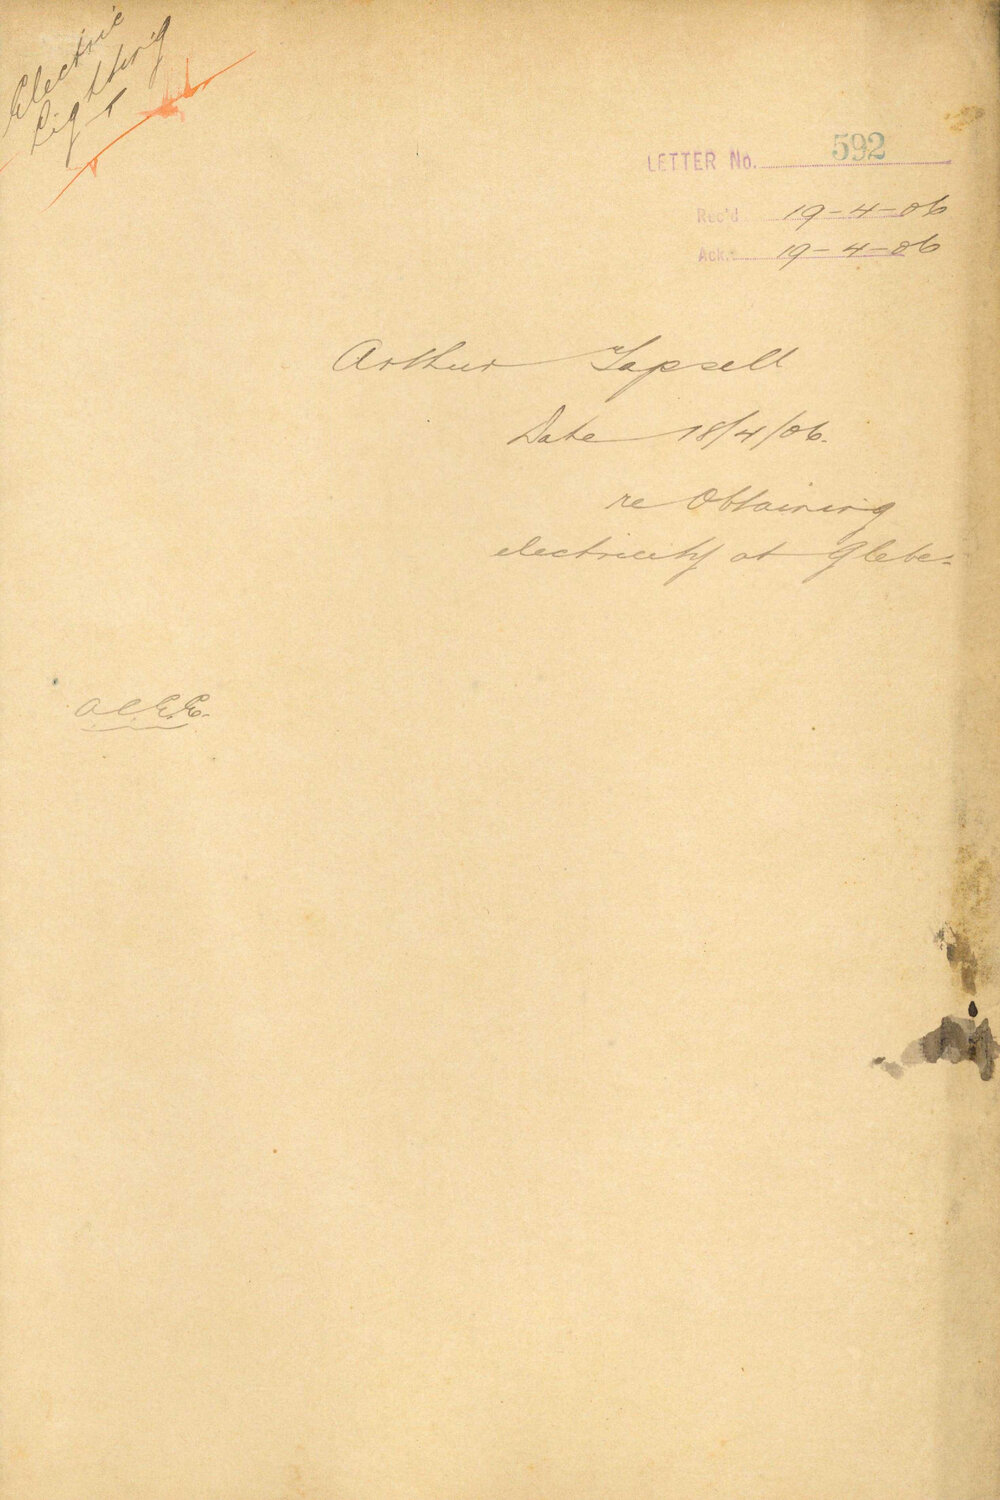 Electric
Lighting
LETTER No. 592
Rec'd 19-4-06
Ack. 19-4-06
Arthur Tapsell
Date 18/4/06.
re Obtaining
electricity at Glebe.